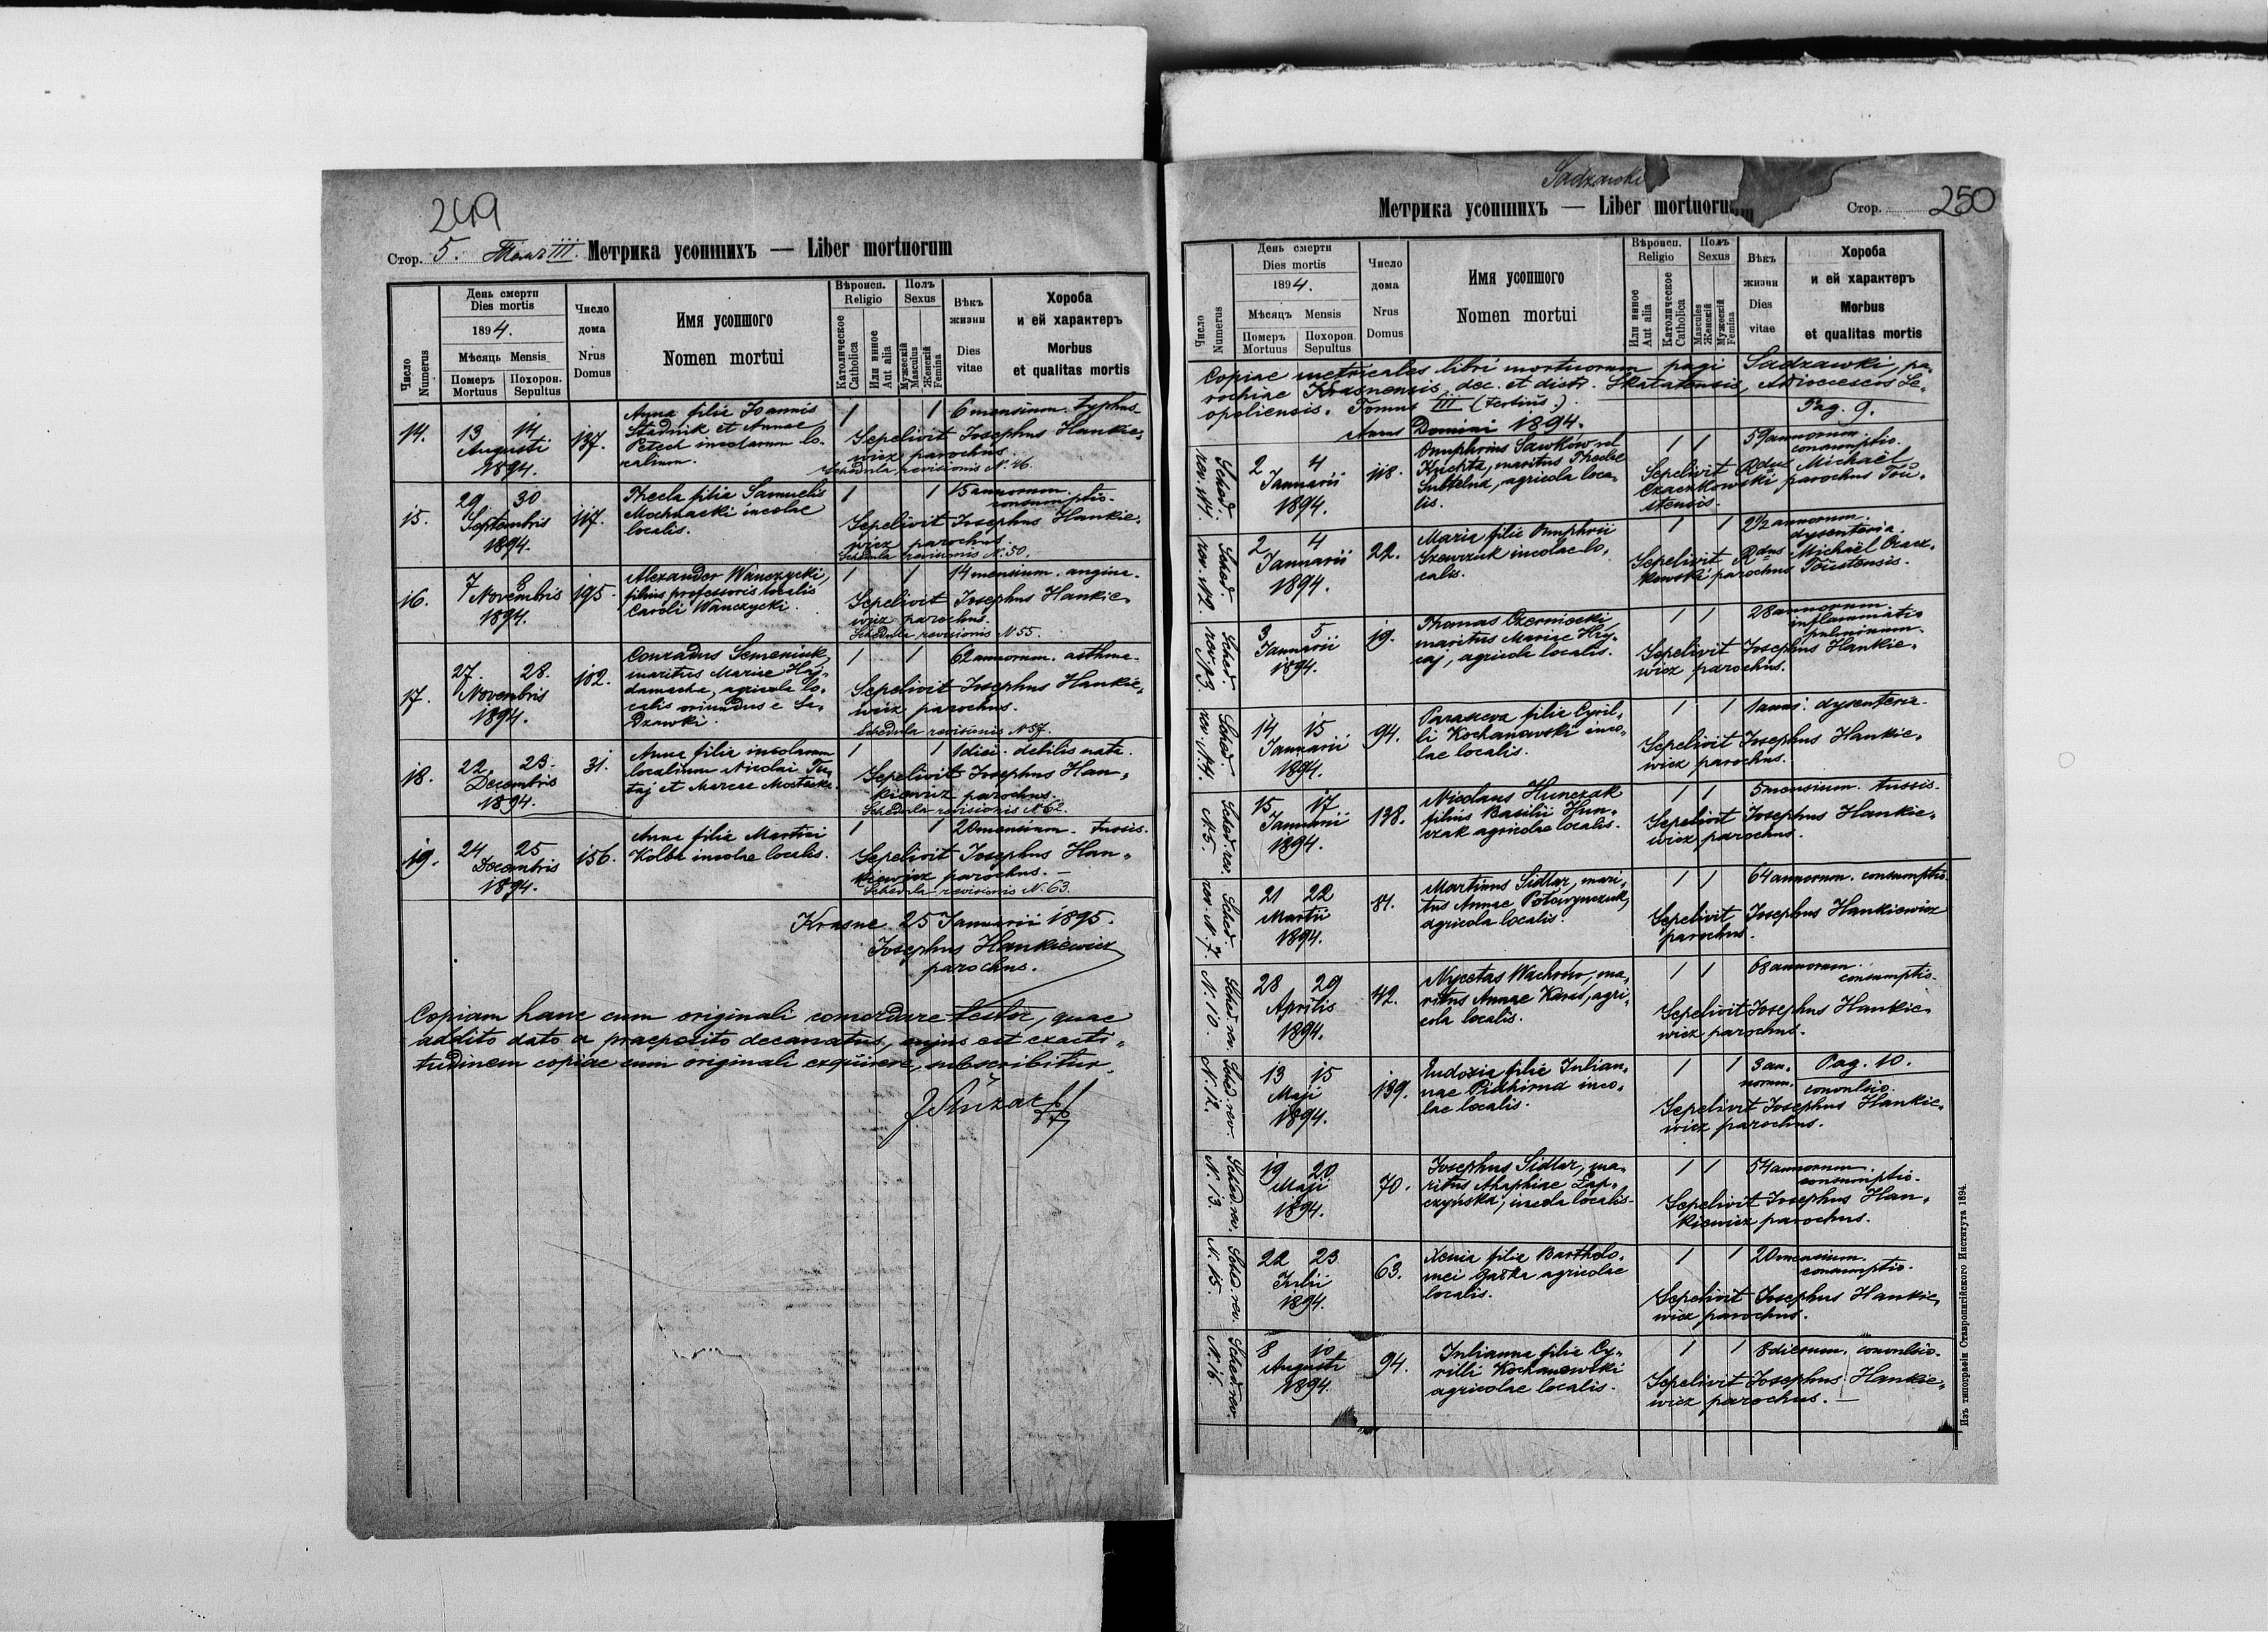 249
Стор. 5. Том III. Метрика усопшихъ — Liber mortuorum
Число
Numerus
День смерти
Dies mortis
1894.
Мѣсяць Mensis
Померъ
Mortuus
Похорон.
Sepultus
Число
дома
Nrus
Domus
Имя усопшого
Nomen mortui
Вѣроисп.
Religio
Католическое
Catholica
Или инное
Aut alia
Полъ
Sexus
Мужескій
Masculus
Женскій
Femina
Вѣкъ
жизни
Dies
vitae
Хороба
и ей характеръ
Morbus
et qualitas mortis
14.
13 14
Augusti
1894.
137.
Anna filia Joannis
Stadnik et Annae
Petech incolarum lo-
calium.
1 1 6 mensium. typhus
Sepelivit Josephus Hankie-
wicz parochus.
Schedula revisionis N. 46.
15.
29 30
Septembris
1894.
117.
Thecla filia Samuelis
Mochnacki incolae
localis.
1 1 15 annorum.
consumptio.
Sepelivit Josephus Hankie-
wicz parochus.
Schedula revisionis N. 50.
16.
7 8
Novembris
1894.
195.
Alexander Wanczycki,
filius professoris localis
Caroli Wanczycki.
1 1 14 mensium. angina.
Sepelivit Josephus Hankie-
wicz parochus.
Schedula revisionis N 55.
17.
27. 28.
Novembris
1894.
102.
Conradus Semeniuk,
maritus Mariae Haj-
damacha, agricola lo-
calis oriundus e Sa-
dzawki.
1 1 62 annorum. asthma.
Sepelivit Josephus Hankie-
wicz parochus.
Schedula revisionis N 57.
18.
22. 23.
Decembris
1894.
31.
Anna filia incolarum
localium Nicolai
et Mariae
1 1 1 diei. debilis nata.
Sepelivit Josephus Han-
kiewicz parochus.
Schedula revisionis N 62.
19.
24 25
Decembris
1894.
156.
Anna filia Martini
Kolba incolae localis.
1 1 20 mensium. tussis.
Sepelivit Josephus Han-
kiewicz parochus. —
Schedula revisionis N. 63.
Krasne 25 Januarii 1895.
Josephus Hankiewicz
parochus.
Copiam hanc cum originali concordare testor, quae
addito dato a praeposito decanatus, cujus est exacti-
tudinem copiae cum originali exquirere, subscribitur.
Sadzawki
Метрика усопшихъ — Liber mortuorum
Стор. 250
Число
Numerus
День смерти
Dies mortis
1894.
Мѣсяцъ Mensis
Померъ
Mortuus
Похорон.
Sepultus
Число
дома
Nrus
Domus
Имя усопшого
Nomen mortui
Вѣроисп.
Religio
Или инное
Aut alia
Католическое
Catholica
Полъ
Sexus
Masculus
Женскій
Мужескій
Femina
Вѣкъ
жизни
Dies
vitae
Хороба
и ей характеръ
Morbus
et qualitas mortis
Copiae metricales libri mortuorum pagi Sadzawki, pa-
rochiae Krasnensis, dec. et distr. Skalatensis, Adioeceseos Le-
opoliensis. Tomus III (tertius).
Pag. 9.
Annus Domini 1894.
Sched.
rev. N 1.
2 4
Januarii
1894.
118.
Onuphrius Sawków vel
Kuchta, maritus Theclae
Subtelna, agricola loca-
lis.
1 1 59 annorum.
consumptio.
Sepelivit Rdus Michaël
Czaczkowski parochus Tou-
stensis.
Sched.
rev. N 2
2 4
Januarii
1894.
22.
Maria filia Onuphrii
Szewczuk incolae lo-
calis.
1 1 2 1/2 annorum.
dysenteria.
Sepelivit Rdus Michaël Czacz-
kowski parochus Toustensis.
Sched.
rev. N 3.
3 5
Januarii
1894.
19.
Thomas Czerniecki,
maritus Mariae Hry-
caj, agricola localis.
1 1 28 annorum.
inflammatio
pulmonum.
Sepelivit Josephus Hankie-
wicz parochus.
Sched.
rev. N. 4.
14 15
Januarii
1894.
94.
Parasceva filia Cyril-
li Kochanowski inco-
lae localis.
1 1 1 anni. dysenteria.
Sepelivit Josephus Hankie-
wicz parochus.
Sched. rev.
N. 5.
15 17
Januarii
1894.
138.
Nicolaus Hunczak
filius Basilii Hun-
czak agricolae localis.
1 1 5 mensium. tussis.
Sepelivit Josephus Hankie-
wicz parochus.
Sched.
rev. N. 7.
21 22
Martii
1894.
81.
Martinus Sidlar, mari-
tus Annae
agricola localis.
1 1 64 annorum. consumptio.
Sepelivit Josephus Hankiewicz
parochus.
Sched. rev.
N. 10.
28 29
Aprilis
1894.
42.
Nycetas Wachrów, ma-
ritus Annae Karas, agri-
cola localis.
1 1 68 annorum.
consumptio.
Sepelivit Josephus Hankie-
wicz parochus.
Sched. rev.
N. 12.
13 15
Maji
1894.
139.
Eudoxia filia Julian-
nae Pidhirna inco-
lae localis.
1 1 3 an-
norum.
Pag. 10.
convulsio.
Sepelivit Josephus Hankie-
wicz parochus.
Sched. rev.
N. 13.
19 20
Maji
1894.
70.
Josephus Sidlar, ma-
ritus Ahaphiae Łap-
czyńska, incola localis.
1 1 54 annorum.
consumptio.
Sepelivit Josephus Han-
kiewicz parochus.
Sched. rev.
N. 15.
22 23
Julii
1894.
63.
Xenia filia Bartholo-
mei Gaska agricolae
localis.
1 1 20 mensium.
consumptio.
Sepelivit Josephus Hankie-
wicz parochus.
Sched. rev.
N. 16.
8 10
Augusti
1894.
94.
Julianna filia Cy-
rilli Kochanowski
agricolae localis.
1 1 8 dierum. convulsio.
Sepelivit Josephus Hankie-
wicz parochus. —
Изъ типографіи Ставропигійского Института 1894.